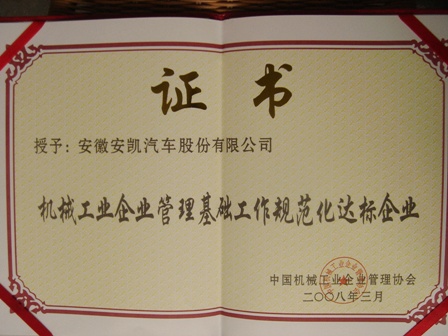 证书
授予：安徽安凯汽车股份有限公司
机械工业企业管理基础工作规范化达标企业
中国机械工业企业管理协会
二〇〇八年三月